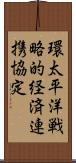 環太平洋戦
略的経済連
携協定